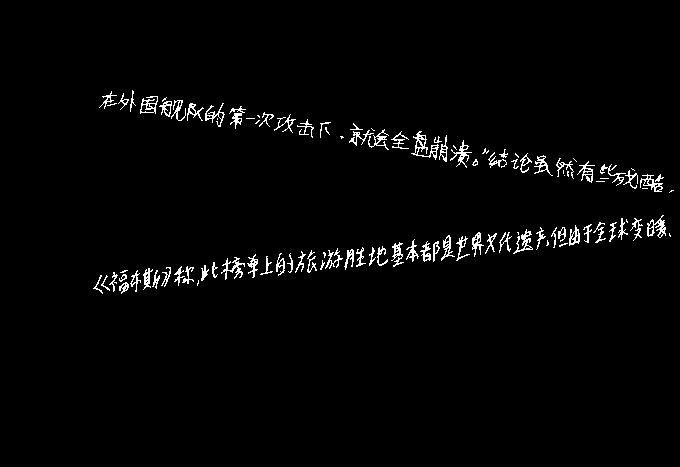 在外国舰队的第一次攻击下，就会全盘崩溃。”结论虽然有些残酷，
《福布斯》称，此榜单上的旅游胜地基本都是世界文化遗产，但由于全球变暖、